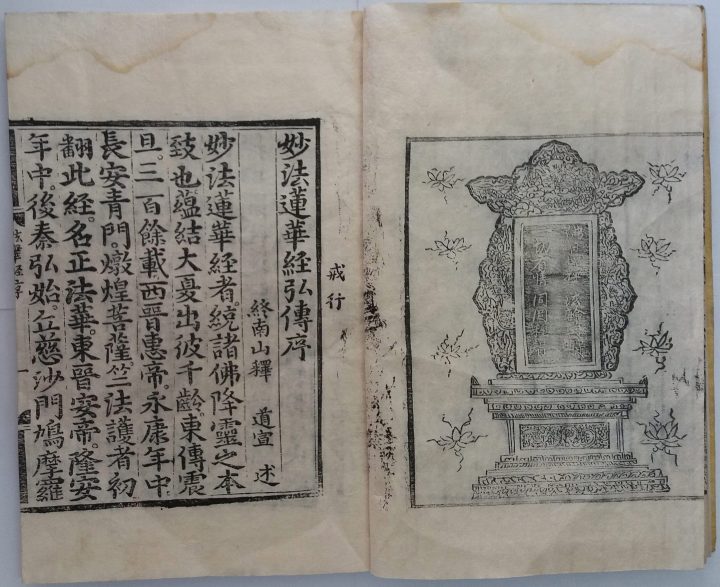 戒行
妙法蓮華經弘傳序
終南山釋 道宣 述
妙法蓮華經者。統諸佛降靈之本
致也蘊結大夏出彼千齡。東傳震
旦。三百餘載西晉惠帝。永康年中
長安青門。燉煌菩薩竺法護者初
翻此經。名正法華。東晉安帝。隆安
年中。後秦弘始。丘慈沙門鳩摩羅
法華經序
一